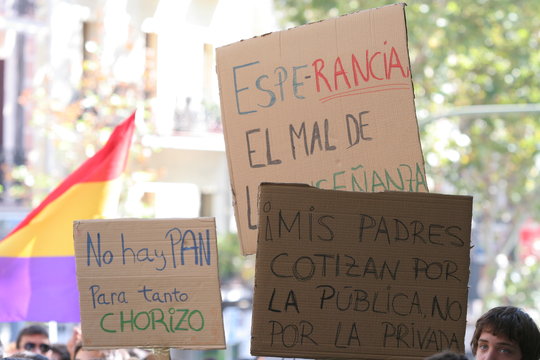 ESPE-RANCIA
EL MAL DE
ENSEÑANZA
¡MIS PADRES
COTIZAN POR
LA PÚBLICA, NO
POR LA PRIVADA
No hay PAN
Para tanto
CHORIZO